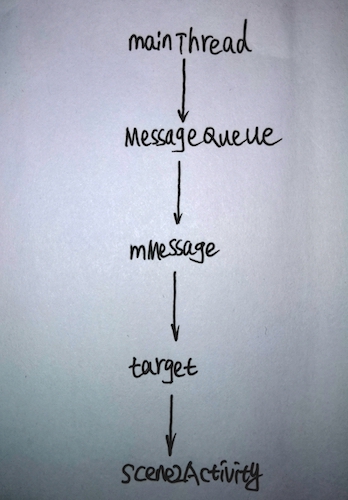 mainThread
MessageQueue
mMessage
target
scene2Activity